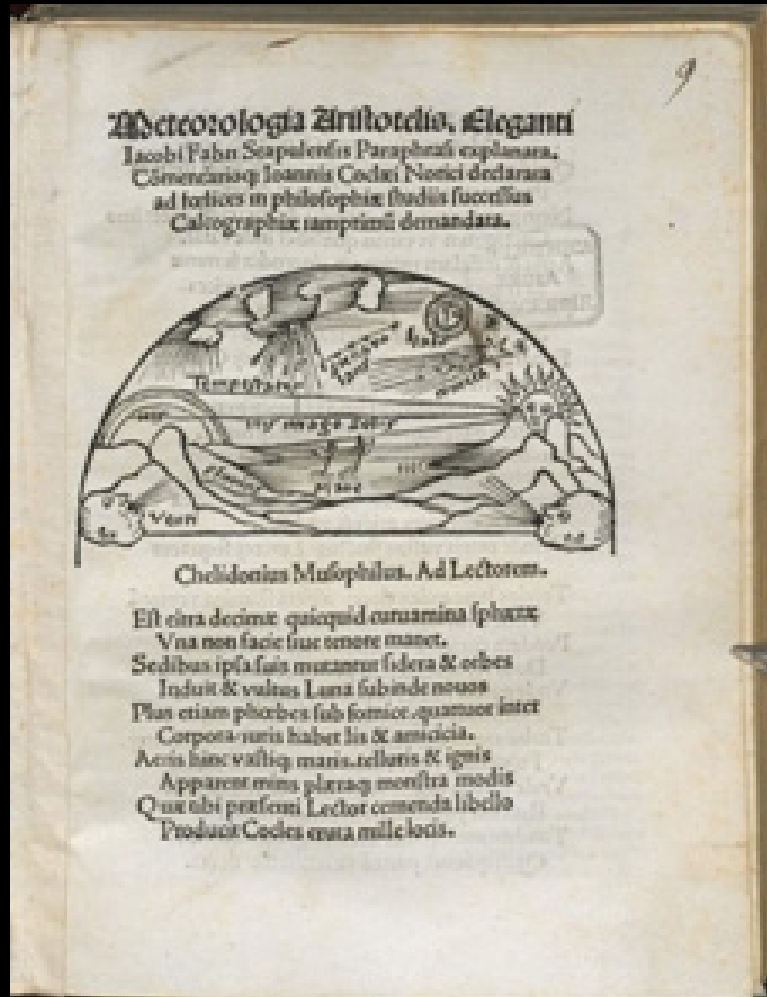 Meteorologia Aristotelis. Eleganti
Iacobi Fabri Stapulensis Paraphrasi explanata.
Cōmentarioq; Ioannis Coclæi Norici declarata
ad fœlices in philosophiæ studiis successus
Calcographiæ iamprimū demandata.
Tempestates
Iris
imago Solis
Venti
Chelidonius Musophilus. Ad Lectorem.
Est citra decimæ quicquid curuamina sphæræ
Vna non facie siue tenore manet.
Sedibus ipsa suis mutantur sidera & orbes
Induit & vultus Luna subinde nouos
Plus etiam phœbes sub fornice. quattuor inter
Corpora iuris habet lis & amicicia.
Aeris hinc vastiq; maris. telluris & ignis
Apparent miris plæraq; monstra modis
Quæ tibi præsenti Lector cōmenda libello
Producit Cocles eruta mille locis.